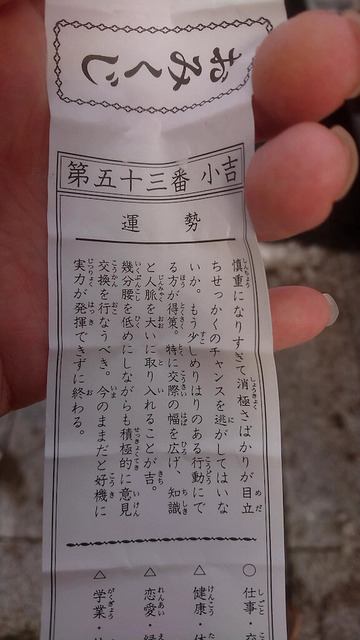 おみくじ
第五十三番 小吉
運勢
慎重になりすぎて消極さばかりが目立
ちせっかくのチャンスを逃がしてはいな
いか。もう少しめりはりのある行動にで
る方が得策。特に交際の幅を広げ、知識
と人脈を大いに取り入れることが吉。
幾分腰を低めにしながらも積極的に意見
交換を行なうべき。今のままだと好機に
実力が発揮できずに終わる。
○ 仕事・交
△ 健康・体
△ 恋愛・縁
△ 学業・